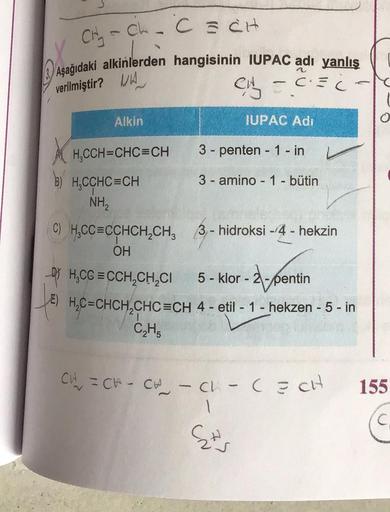 CH₃ - CH - C ≡ CH
3. Aşağıdaki alkinlerden hangisinin IUPAC adı yanlış
verilmiştir?
NH₂
CH₃ - C ≡ C -
Alkin IUPAC Adı
A) H₃CCH=CHC≡CH 3 - penten - 1 - in
B) H₃CCHC≡CH 3 - amino - 1 - bütin
NH₂
C) H₃CC≡CCHCH₂CH₃ 3 - hidroksi - 4 - hekzin
OH
D) H₃CC≡CCH₂CH₂Cl 5 - klor - 2 - pentin
E) H₂C=CHCH₂CHC≡CH 4 - etil - 1 - hekzen - 5 - in
C₂H₅
CH₂ = CH - CH₂ - CH - C ≡ CH
155
C₂H₅
C